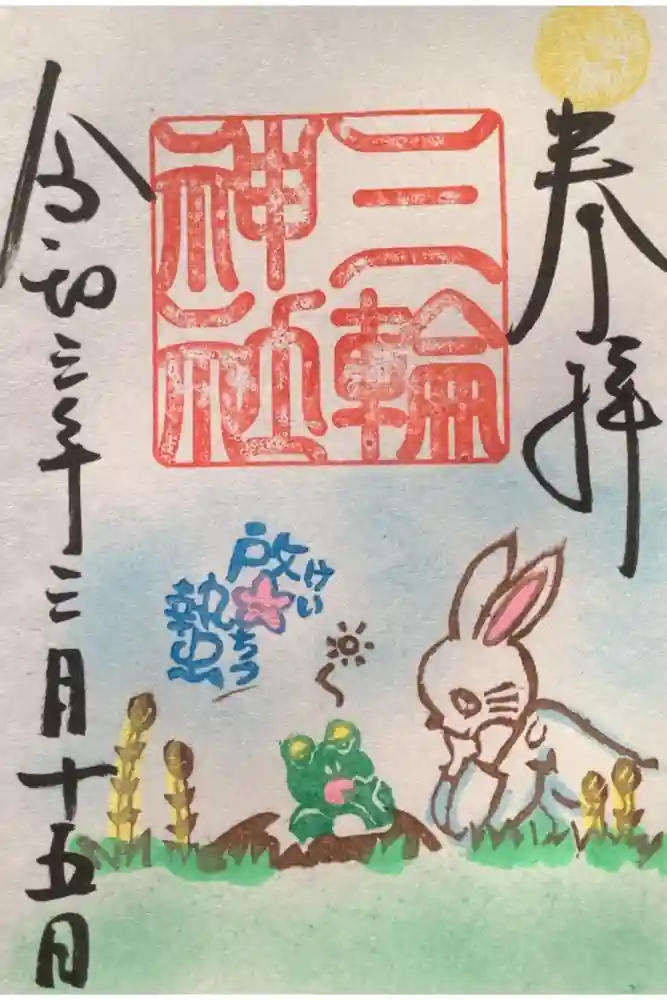 奉拝
三輪
神社
啓蟄
けい
ちつ
令和三年三月十五日